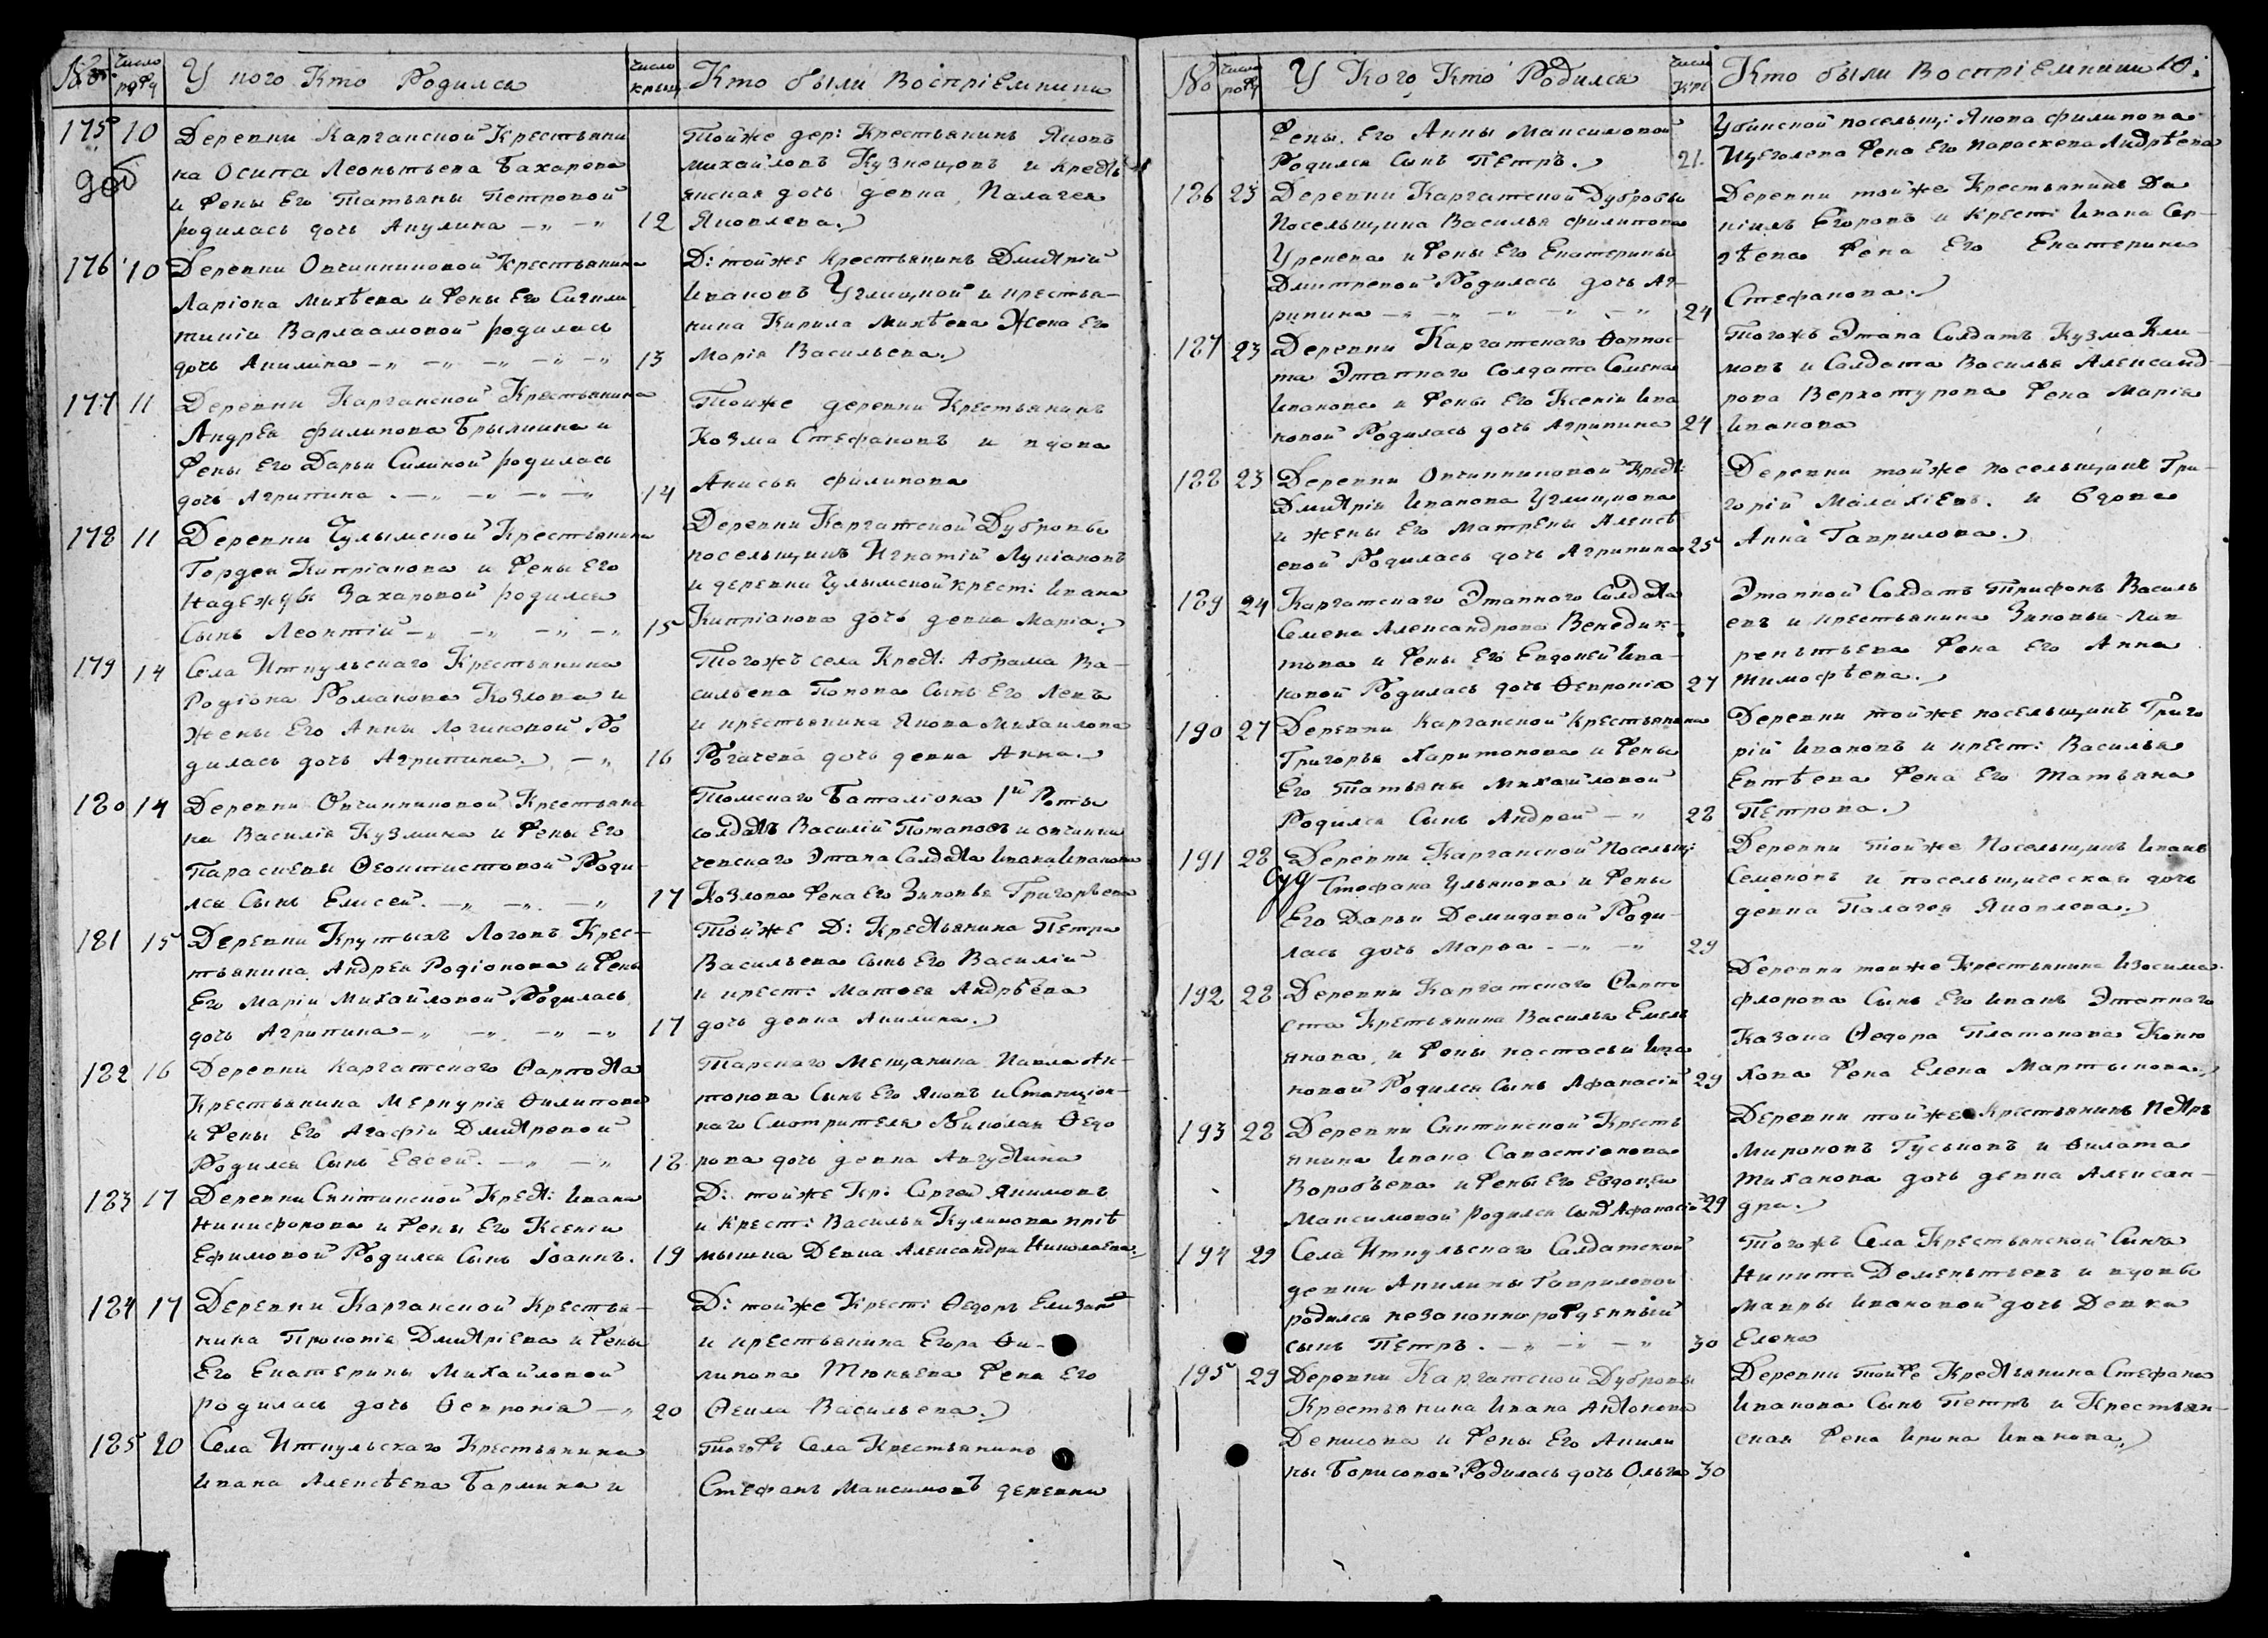 № Число рожд У кого Кто Родился Число крещ Кто были Воспріемники
175 10 Деревни Карганской Крестьяни
на Осипа Леонтьева Бахарева
и жены Его Татьяны Петровой
родилась дочь Акулина 12
Тойже дер: Крестьянинъ Яковъ
Михайловъ Кузнецовъ и крест
янская дочь девка Палагея
Яковлева.
176 10 Деревни Овчинниковой Крестьянина
Ларіона Михѣева и жены Его
Варлаамовой родилась
дочь Акилина 13
Д: тойже Крестьянинъ Дмитрій
Ивановъ Углицкой и крестья-
нина Кирила Михѣева Жена Его
Марія Васильева.
177 11 Деревни Карганской Крестьянина
Андрея филипова Брылкина и
жены Его Дарьи Силиной родилась
дочь Агрипина 14
Тойже деревни Крестьянинъ
Козма Стефановъ и вдова
Анисья филипова
178 11 Деревни Чулымской Крестьянина
Гордея Кипріанова и жены Его
Надежды Захаровой родился
Сынъ Леонтій 15
Деревни Каргатской Дубровы
посельщикъ Игнатій Лукіановъ
и деревни Чулымской крест: Ивана
Кипріанова дочь девка Марія.
179 14 Села Иткульскаго Крестьянина
Родіона Романова Козлова и
Жены Его Анны Логиновой Ро
дилась дочь Агрипина. 16
Тогожъ села Крест: Абрама Ва-
сильева Попова Сынъ Его Левъ
и крестьянина Якова Михаилова
Рогачева дочь девка Анна.
180 14 Деревни Овчинниковой Крестьяни
на Василія Кузмина и жены Его
Параскевы Феоктистовой Роди
лся Сынъ Елисей. 17
Томскаго Баталіона 1й Роты
солдатъ Василій Потаповъ и овчинни
ческаго Этапа Салдата Ивана Иванова
Козлова жена Его Зиновья Григорьева
181 15 Деревни Крутыхъ Логовъ Крес-
тьянина Андрея Родіонова и жены
Его Маріи Михайловой Родилась
дочь Агрипина 17
Тойже Д: Крестьянина Петра
Васильева сынъ Его Василій
и крест: Матвея Андрѣева
дочь девка Акилина.
182 16 Деревни Каргатскаго Фарпоста
Крестьянина Меркурія Филипова
и жены Его Агафіи Дмитревой
Родился Сынъ Евсей. 18
Тарскаго Мещанина Павла Ан-
тонова Сынъ Его Яковъ и Станціон-
наго Смотрителя Николая Федо
рова дочь девка Августина
183 17 Деревни Скитинской Крест: Ивана
Никифорова и жены Его Ксеніи
Ефимовой Родился Сынъ Іоаннъ. 19
Д: тойже Кр: Сергей Якимовъ
и Крест: Василья Куликова пріѣ
мышка Девка Александра Николаева.
184 17 Деревни Карганской Крестья-
нина Прокопія Дмитріева и жены
Его Екатерины Михайловой
родилась дочь Февронія 20
Д: тойже Крест: Федоръ
и крестьянина Егора Фи-
липова Тюняева жена Его
Фекла Васильева.
185 20 Села Иткульскаго Крестьянина
Ивана Алексѣева Бармина и
Тогожъ Села Крестьянинъ
Стефанъ Максимовъ деревни
№ Число рожд У Кого Кто Родился Число Кре Кто были Воспріемники 10.
жены Его Анны Максимовой
Родился Сынъ Петръ. 21.
Убинской посельщ: Якова филипова
Щеголева жена Его Параскева Андрѣева
186 23 Деревни Каргатской Дубровы
Посельщика Василья филипова
Уренева и жены Его Екатерины
Дмитревой Родилась дочь Аг-
рипина 24
Деревни тойже Крестьянинъ Да
ніилъ Егоровъ и Крест: Ивана Сер-
гѣева жена Его Екатерина
Стефанова.
187 23 Деревни Каргатскаго Фарпос-
та Этапнаго Солдата Семена
Иванова и жены Его Ксеніи Ива
новой Родилась дочь Агрипина 24
Тогожъ Этапа Солдатъ Кузма Кли-
мовъ и Солдата Василья Александ-
рова Верхотурова жена Марія
Иванова
188 23 Деревни Овчинниковой Крест:
Дмитрія Иванова Углицкова
и жены Его Матрены Алексѣ
евой Родилась дочь Агрипина 25
Деревни тойже посельщикъ Гри-
горій Малахіевъ. и вдова
Анна Гаврилова.
189 24 Каргатскаго Этапнаго Солдата
Семена Александрова Бенедик-
това и жены Его Евдокеи Ива-
новой Родилась дочь Февронія 27
Этапной Солдатъ Трифонъ Василь
евъ и крестьянина Зиновья Лав
рентьева жена Его Анна
Тимофѣева.
190 27 Деревни Карганской Крестьянина
Григорья Харитонова и жены
Его Татьяны Михайловой
Родился Сынъ Андрей 28
Деревни тойже посельщикъ Григо
рій Ивановъ и крест: Василья
Евтѣева жена Его Татьяна
Петрова.
191 28 Деревни Карганской Посельщ:
Стефана Ульянова и жены
Его Дарьи Демидовой Роди-
лась дочь Марфа 29
Деревни тойже Посельщикъ Иванъ
Семеновъ и посельщическая дочь
девка Палагея Яковлева.
192 28 Деревни Каргатскаго Фарпо
ста Крестьянина Василья Емель
янова и жены Настасьи Ива
новой Родился Сынъ Афанасій 29
Деревни тойже Крестьянина Изосима
Флорова Сынъ Его Иванъ Этапнаго
Казака Федора Платонова Коню
хова жена Елена Мартынова.
193 28 Деревни Скитинской Кресть
янина Ивана Савастіонова
Воробьева и жены Его Евдокеи
Максимовой родился сынъ Афанасій 29
Деревни тойже Крестьянинъ Петръ
Мироновъ Гусковъ и Филата
Тиханова дочь девка Алексан-
дра.
194 29 Села Иткульскаго Салдатской
девки Акилины Гавриловой
родился незаконнорожденный
сынъ Петръ. 30
Тогожъ Села Крестьянской Сынъ
Никита Дементьевъ и вдовы
Мавры Ивановой дочь Девка
Елена
195 29 Деревни Каргатской Дубровы
Крестьянина Ивана Антонова
Денисова и жены Его Акили
ны Борисовой Родилась дочь Ольга 30
Деревни тойже Крестьянина Стефана
Иванова Сынъ Петръ и Крестьян-
ская жена Ирина Иванова.